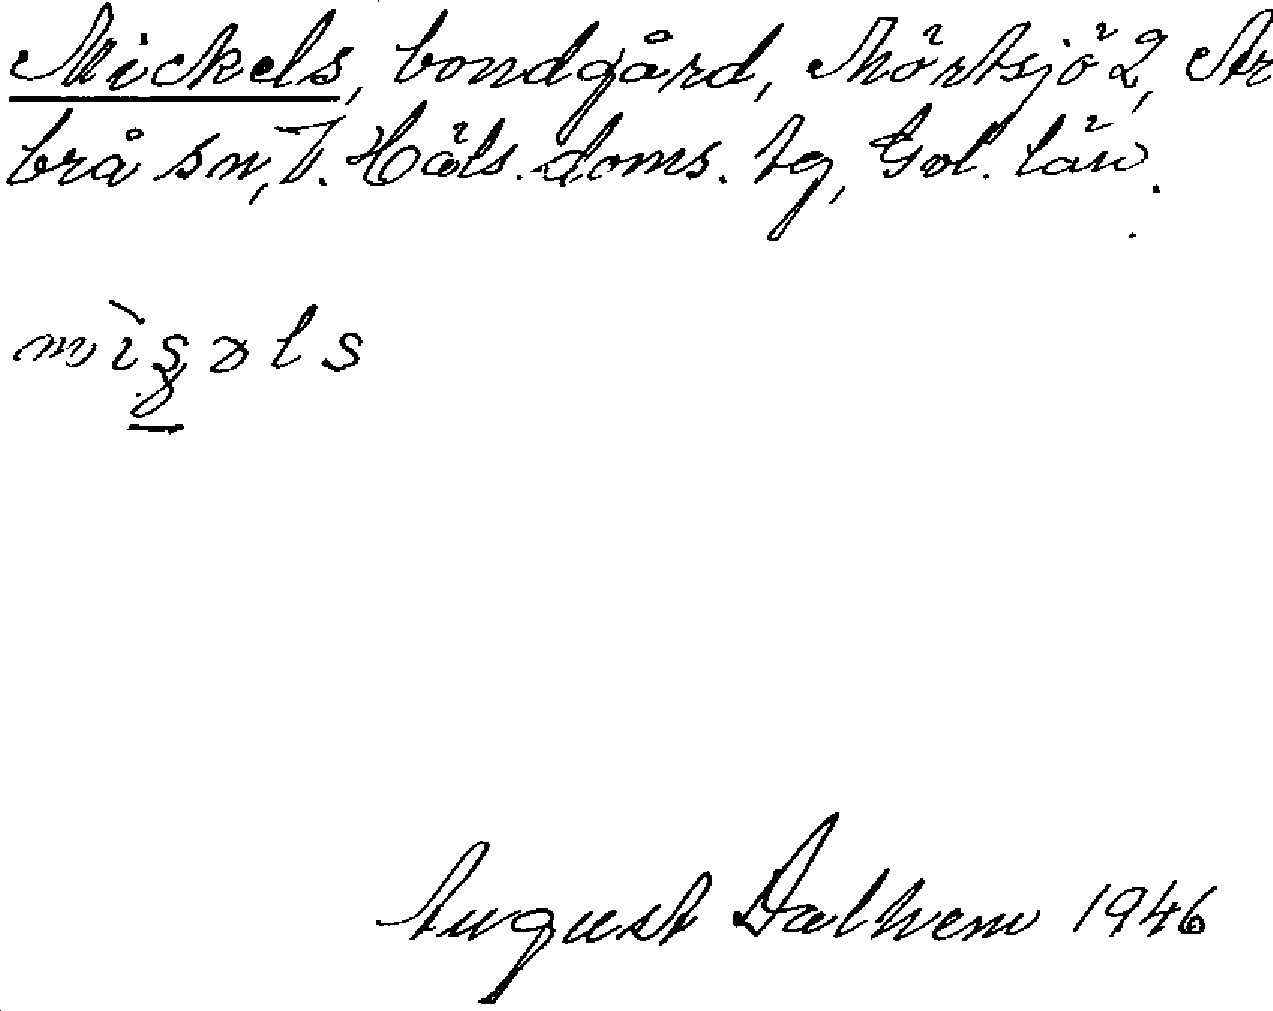 Mickels, bondgård, Mörtsjö 2, Ar
brå sn, V. Häls. doms. tg, Gvl. län.
August Dalhem 1946